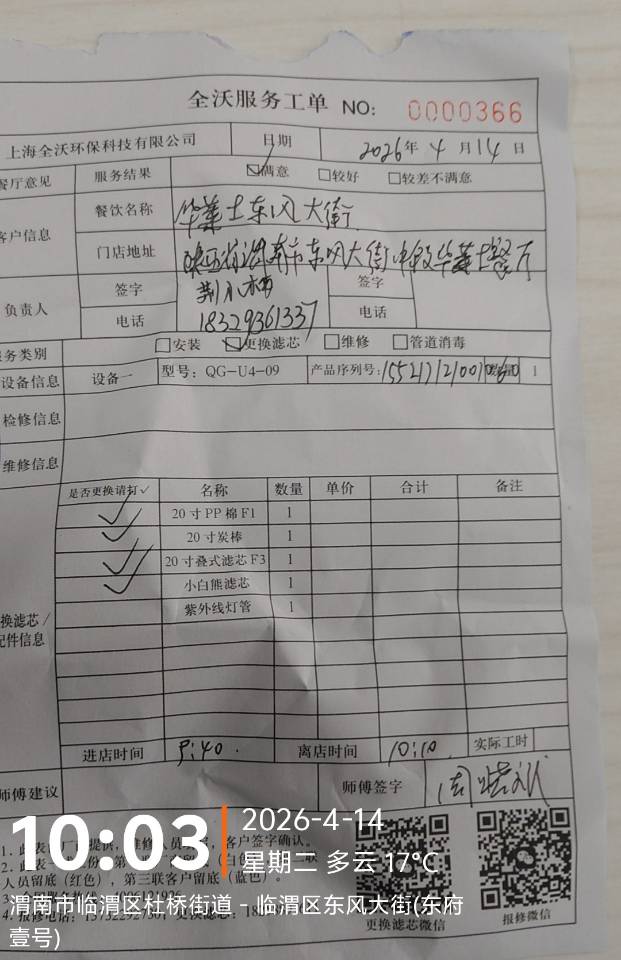 全沃服务工单 NO: 0000366
上海全沃环保科技有限公司 日期 2026年 4 月 14 日
餐厅意见 服务结果 满意 较好 较差不满意
客户信息 餐饮名称 华莱士东风大街
门店地址 陕西省渭南市东风大街中段华莱士餐厅
负责人 签字 签字
电话 18329361337 电话
服务类别 安装 更换滤芯 维修 管道消毒
设备信息 设备一 型号: QG-U4-09 产品序列号: 1
检修信息
维修信息
是否更换请打✓ 名称 数量 单价 合计 备注
✓ 20寸PP棉F1 1
✓ 20寸炭棒 1
✓ 20寸叠式滤芯F3 1
✓ 小白熊滤芯 1
紫外线灯管 1
换滤芯/
配件信息
进店时间 9:40. 离店时间 10:10. 实际工时
师傅建议 师傅签字
10:03 2026-4-14
星期二 多云 17°C
渭南市临渭区杜桥街道 - 临渭区东风大街(东府
壹号)
人员留底（红色），第三联客户留底（蓝色）。
4. 报修电话:
更换滤芯微信 报修微信